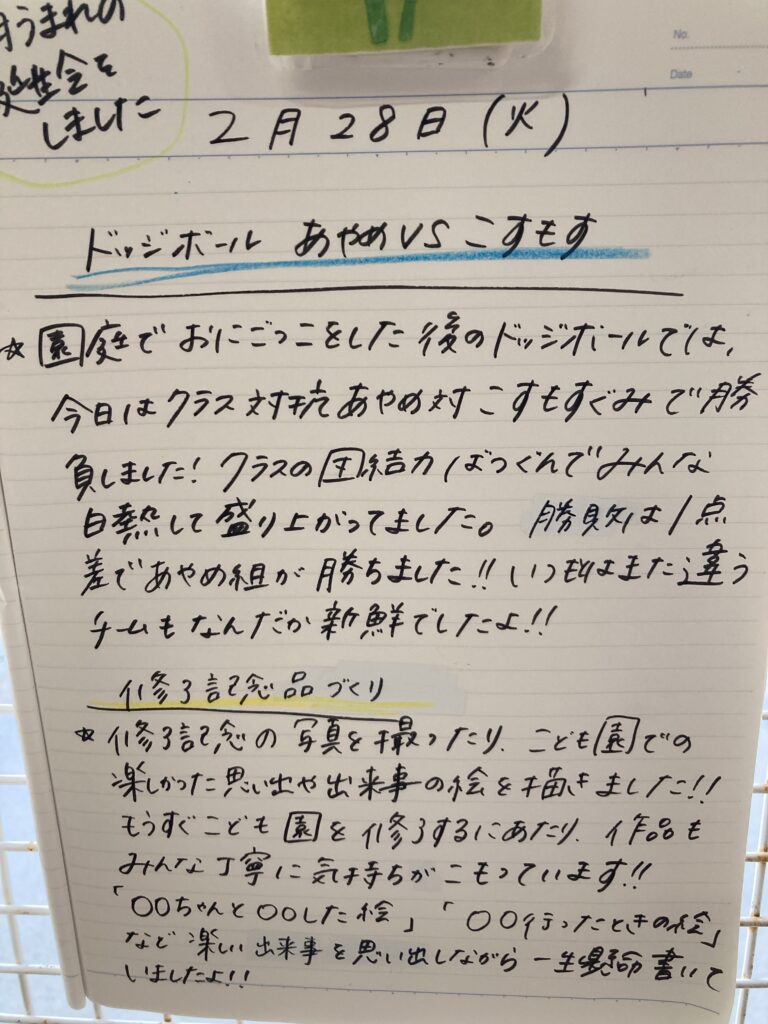 月うまれの
誕生会を
しました
No.
Date
2月28日(火)
ドッジボール あやめVSこすもす
☆園庭でおにごっこをした後のドッジボールでは、
今日はクラス対抗あやめ対こすもすぐみで勝
負しました!クラスの団結力ばつぐんでみんな
白熱して盛り上がってました。勝敗は1点
差であやめ組が勝ちました!!いつもとはまた違う
チームもなんだか新鮮でしたよ!!
修了記念品づくり
☆修了記念の写真を撮ったり、こども園での
楽しかった思い出や出来事の絵を描きました!!
もうすぐこども園を修了するにあたり、作品も
みんな丁寧に気持ちがこもっています!!
「〇〇ちゃんと〇〇した絵」「〇〇行ったときの絵」
など楽しい出来事を思い出しながら一生懸命書いて
いましたよ!!